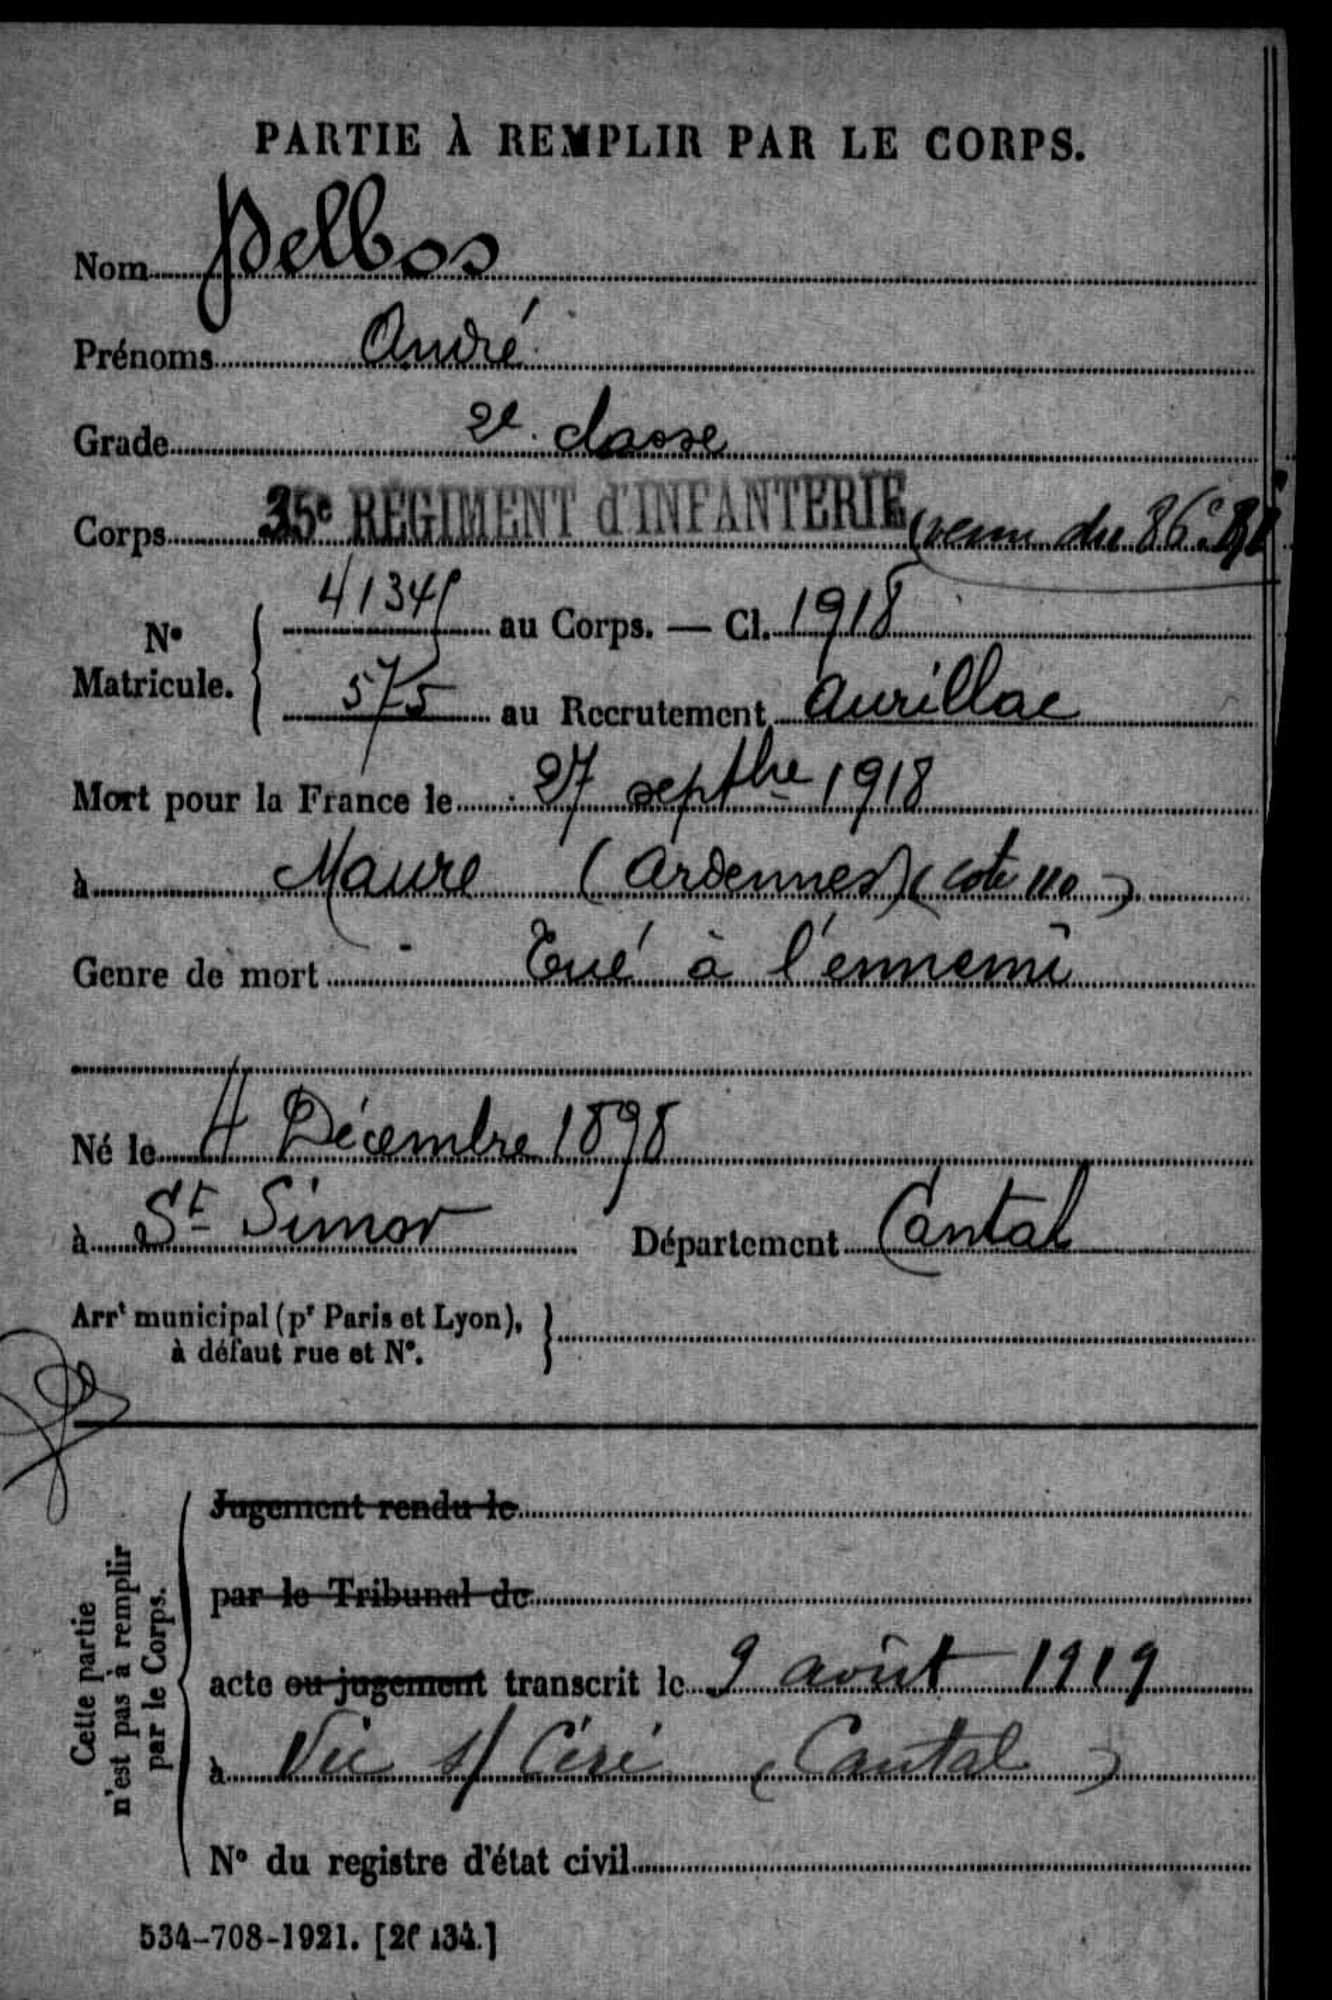 PARTIE À REMPLIR PAR LE CORPS.
Nom Delbos
Prénoms André
Grade 2e classe
Corps 35e RÉGIMENT d'INFANTERIE (venu du 86e RI
No Matricule. 4134 au Corps. — Cl. 1918
575 au Recrutement Aurillac
Mort pour la France le 27 septbre 1918
à Maure (Ardennes) (cote 110)
Genre de mort Tué à l'ennemi
Né le 4 Décembre 1898
à St Simon Département Cantal
Arrt municipal (pr Paris et Lyon),
à défaut rue et No.
Cette partie
n'est pas à remplir
par le Corps.
Jugement rendu le
par le Tribunal de
acte ou jugement transcrit le 9 août 1919
à Vic s/ Cère (Cantal)
No du registre d'état civil
534-708-1921. [26134.]